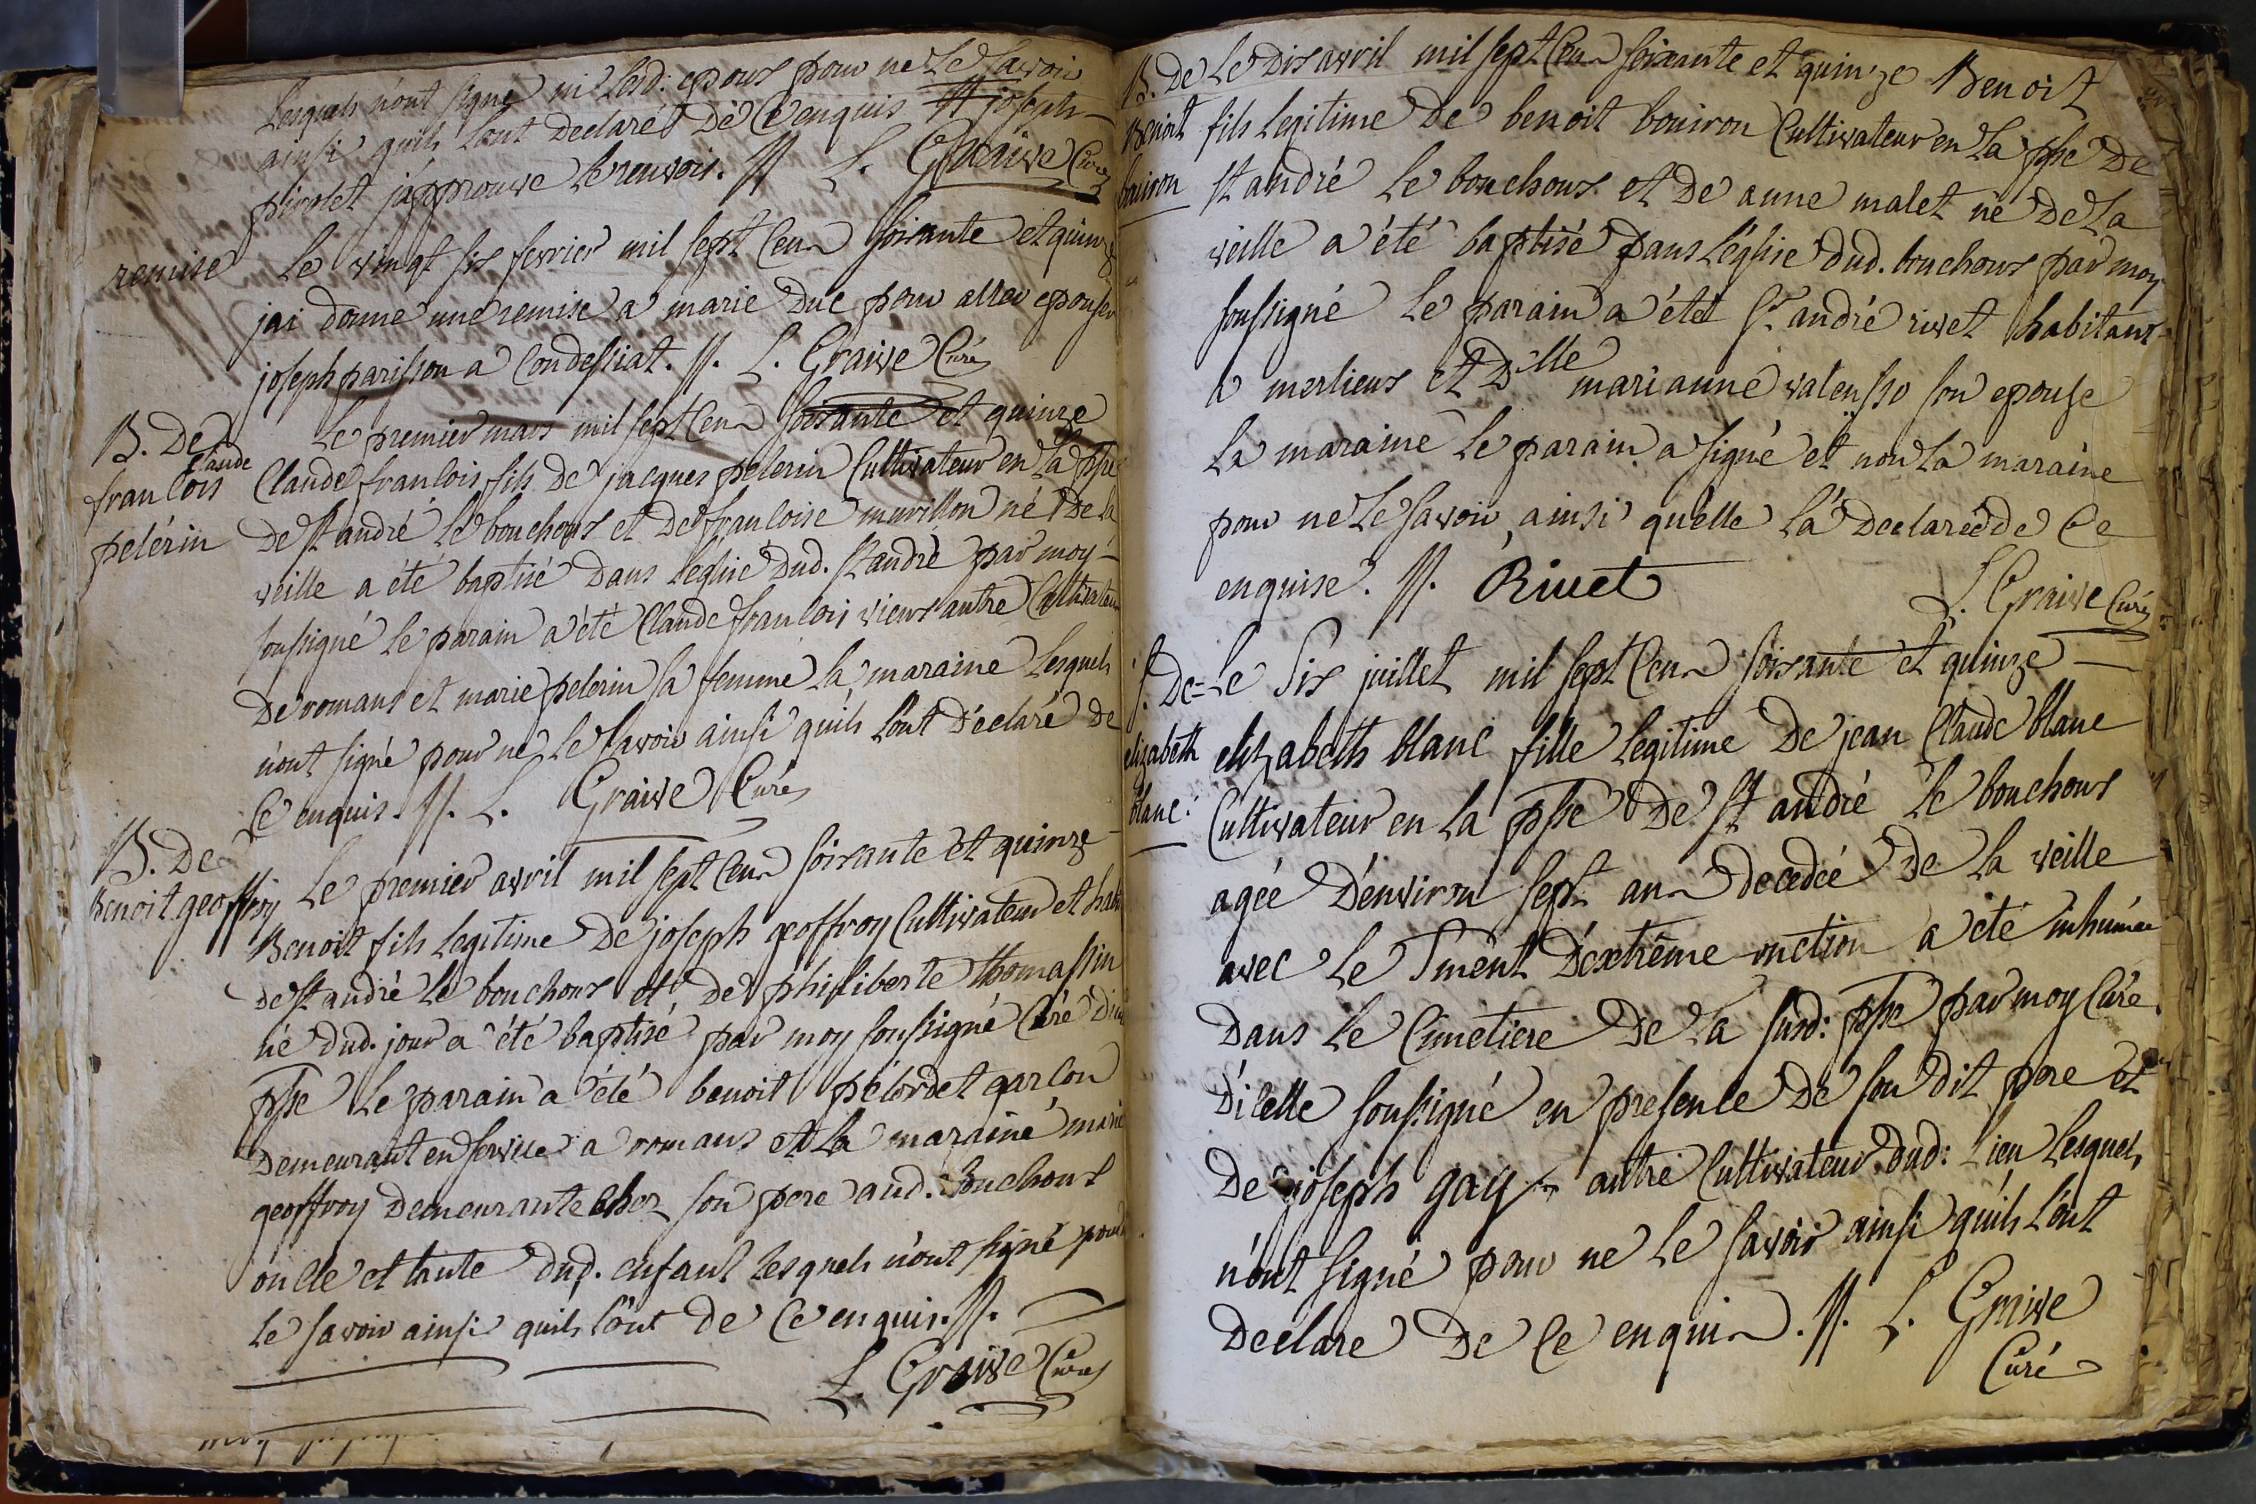 Lesquels n'ont signé ni lesd: epoux pour ne le savoir
ainsi quils l'ont declaré De Ce enquis joseph
pirolet j'approuve le renvoir. //. L. Graive Curé
remise
Le vingt six fevrier mil sept Cen soixante et quinze
jai donne une remise a marie Duc pour aller epouser
joseph parisson a Condessiat. //. L. Graive Curé
B. De
Claude
francois
pelérin
Le premier mars mil sept Cen soixante et quinze
Claude francois fils De jacques pelerin Cultivateur en La ppse
De st andré le bouchoux et De francoise muvillon né De la
veille a été baptisé Dans l'eglise Dud. st andré par moy
soussigné le parain a été Claude francois vieux autre Cultivateur
De romans et marie pelerin sa femme la maraine Lesquels
n'ont signé pour ne le savoir ainsi quils l'ont Déclaré De
Ce enquis. //. L. Graive Curé
B. De
Benoit geoffroy
Le premier avril mil sept Cen soixante et quinze
Benoit fils Legitime De joseph geoffroy Cultivateur et
De st andré le bouchoux et De philiberte thomassin
né Dud. jour a été baptisé par moy soussigné Curé
ppse Le parain a été benoit pélordet garcon
Demeurant en service a romans et La maraine marie
geoffroy Demeurante chez son pere aud. bouchoux
oncle et tante Dud. enfant Lesquels n'ont signé pour
le savoir ainsi quils l'ont De Ce enquis. //.
L. Graive Curé
B. De
Benoit
bouiron
Le Dix avril mil sept Cen soixante et quinze Benoit
fils Legitime De benoit bouiron Cultivateur en La ppse De
st andré Le bouchoux et De anne malet né De La
veille a été baptisé Dans L'église Dud. bouchoux par moy
soussigné Le parain a étét Sr. andré rivet habitant
a merlieux et Dlle marianne valensso son epouse
La maraine Le parain a signé et non La maraine
pour ne Le savoir, ainsi qu'elle l'a Declarée De Ce
enquise. //. Rivet
L. Graive Curé
S. De
elizabeth
blanc.
Le Six juillet mil sept Cen soixante et quinze
elizabeth blanc fille Legitime De jean Claude blanc
Cultivateur en La ppse De st andré Le bouchoux
agée D'environ sept an Decedée De La veille
avec Le Sment D'extrême onction a été inhumée
Dans Le Cimetiere De La susd: ppse par moy Curé
D'icelle soussigné en presence De son Dit pere et
De joseph gay autre Cultivateur Dud: Lieu Lesquels
n'ont signé pour ne Le savoir ainsi qu'ils l'ont
Declare De Ce enquis. //. L. Graive
Curé